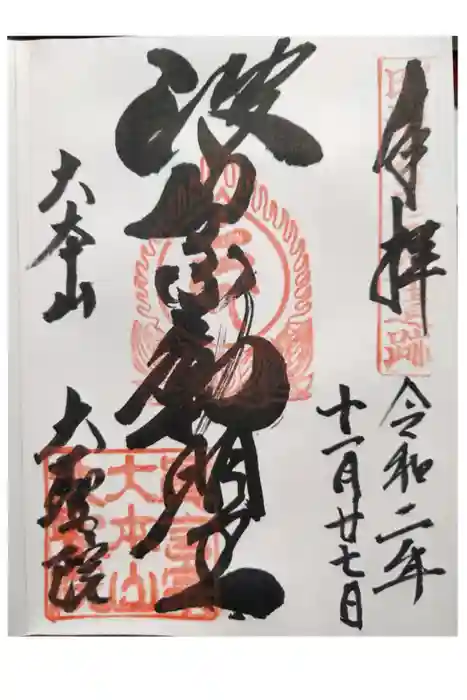 奉拝
令和二年
十一月廿七日
波切不動明王
大本山
大聖院
大本山